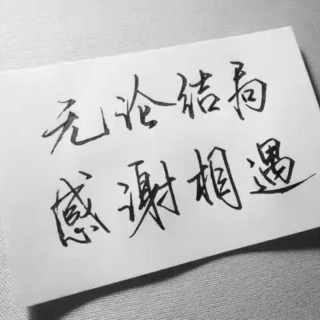 无论结局
感谢相遇